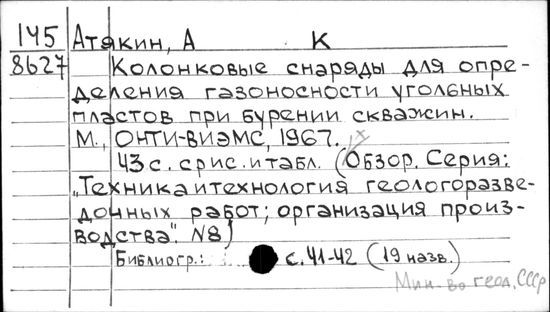 145 Атякин, А К
8627 Колонковые снаряды для опре-
деления газоносности угольных
пластов при бурении скважин.
М., ОНТИ-ВИЭМС, 1967.
43 с. с рис. и табл. (Обзор. Серия:
"Техника и технология геологоразве-
дочных работ; организация произ-
водства". №8)
Библиогр.: с. 41-42 (19 назв.)
Мин-во геол. СССР